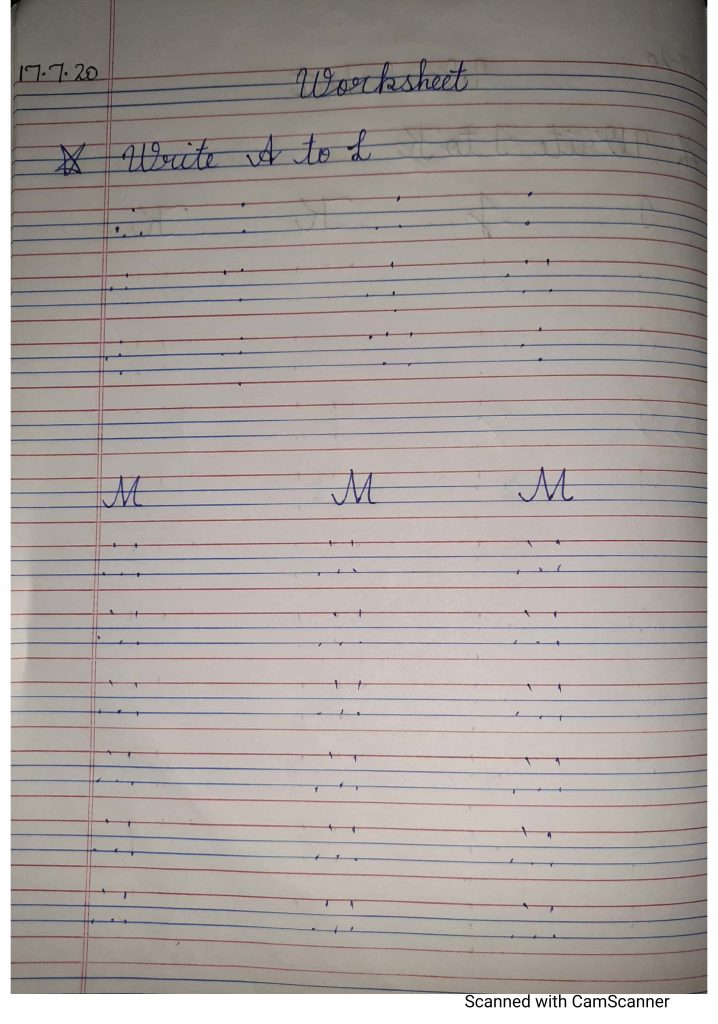 17.7.20
Worksheet
Write A to L
M M M
Scanned with CamScanner